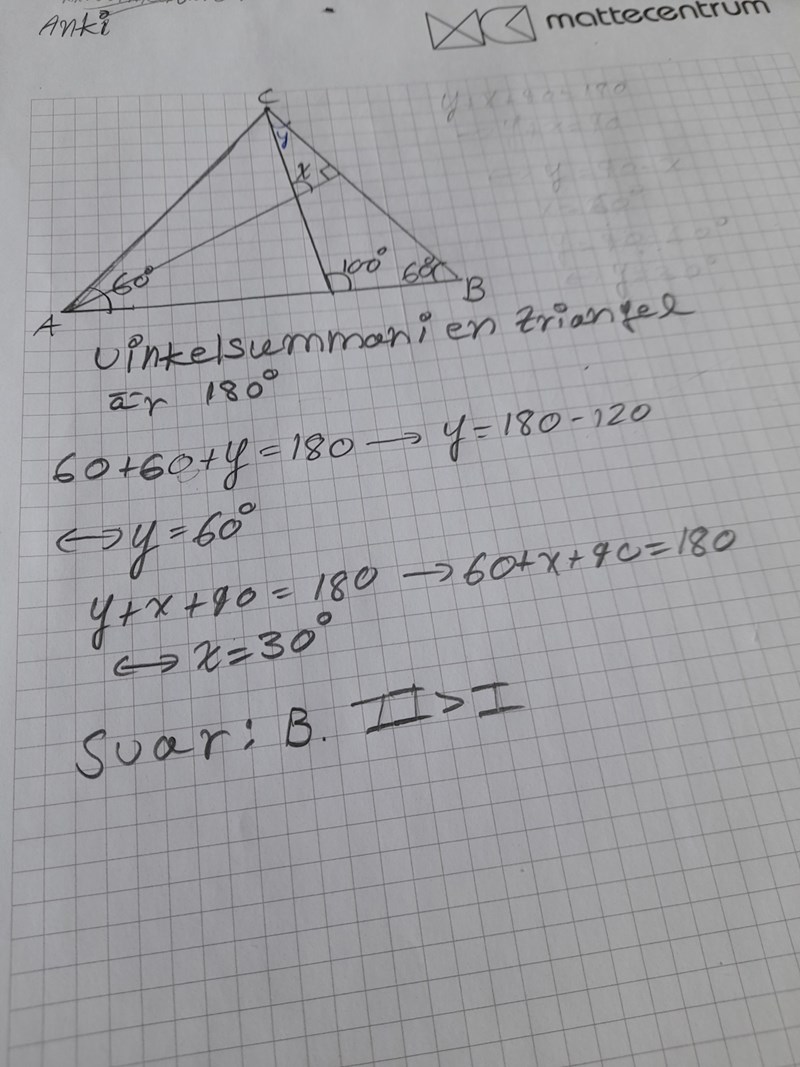 Anki
mattecentrum
C
y
x
60°
100°
60
A
B
Vinkelsumman i en triangel
är 180°
60+60+y=180 → y=180-120
↔ y=60°
y+x+90=180 → 60+x+90=180
↔ x=30°
Svar: B. II>I